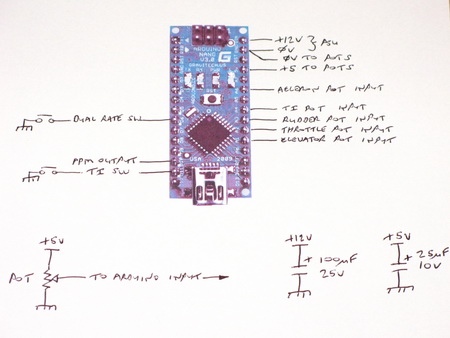 +12V } PSU
0V
0V TO POTS
+5 TO POTS
AELERON POT INPUT
TI POT INPUT
RUDDER POT INPUT
THROTTLE POT INPUT
ELEVATOR POT INPUT
DUAL RATE SW
PPM OUTPUT
TI SW
ARDUINO
NANO
V3.0
USA 2009
+5V
POT
TO ARDUINO INPUT
+12V
+ 100µF
25V
+5V
+ 25µF
10V